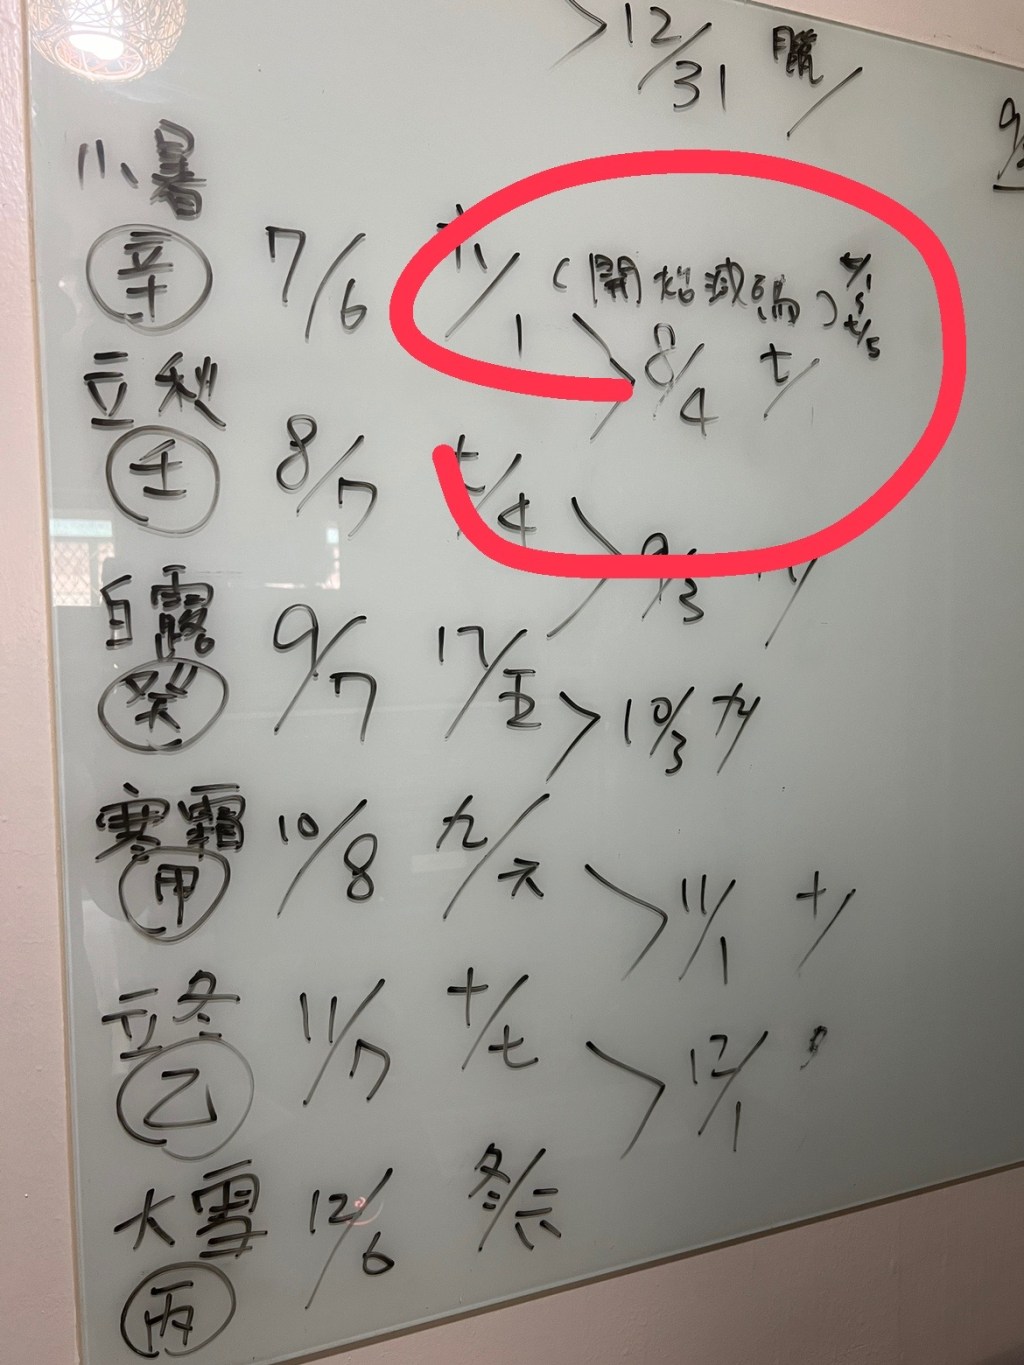 >12/31 臘/
9/
小暑
辛 7/6 六/1 (開始減碼) 七/1
七/5
>8/4 七/
立秋
壬 8/7 七/4 >9/3
白露
癸 9/7 17/五 >10/3 九/
寒霜
甲 10/8 九/六 >11/1 十/
立冬
乙 11/7 十/七 >12/1
大雪
丙 12/6 冬/六